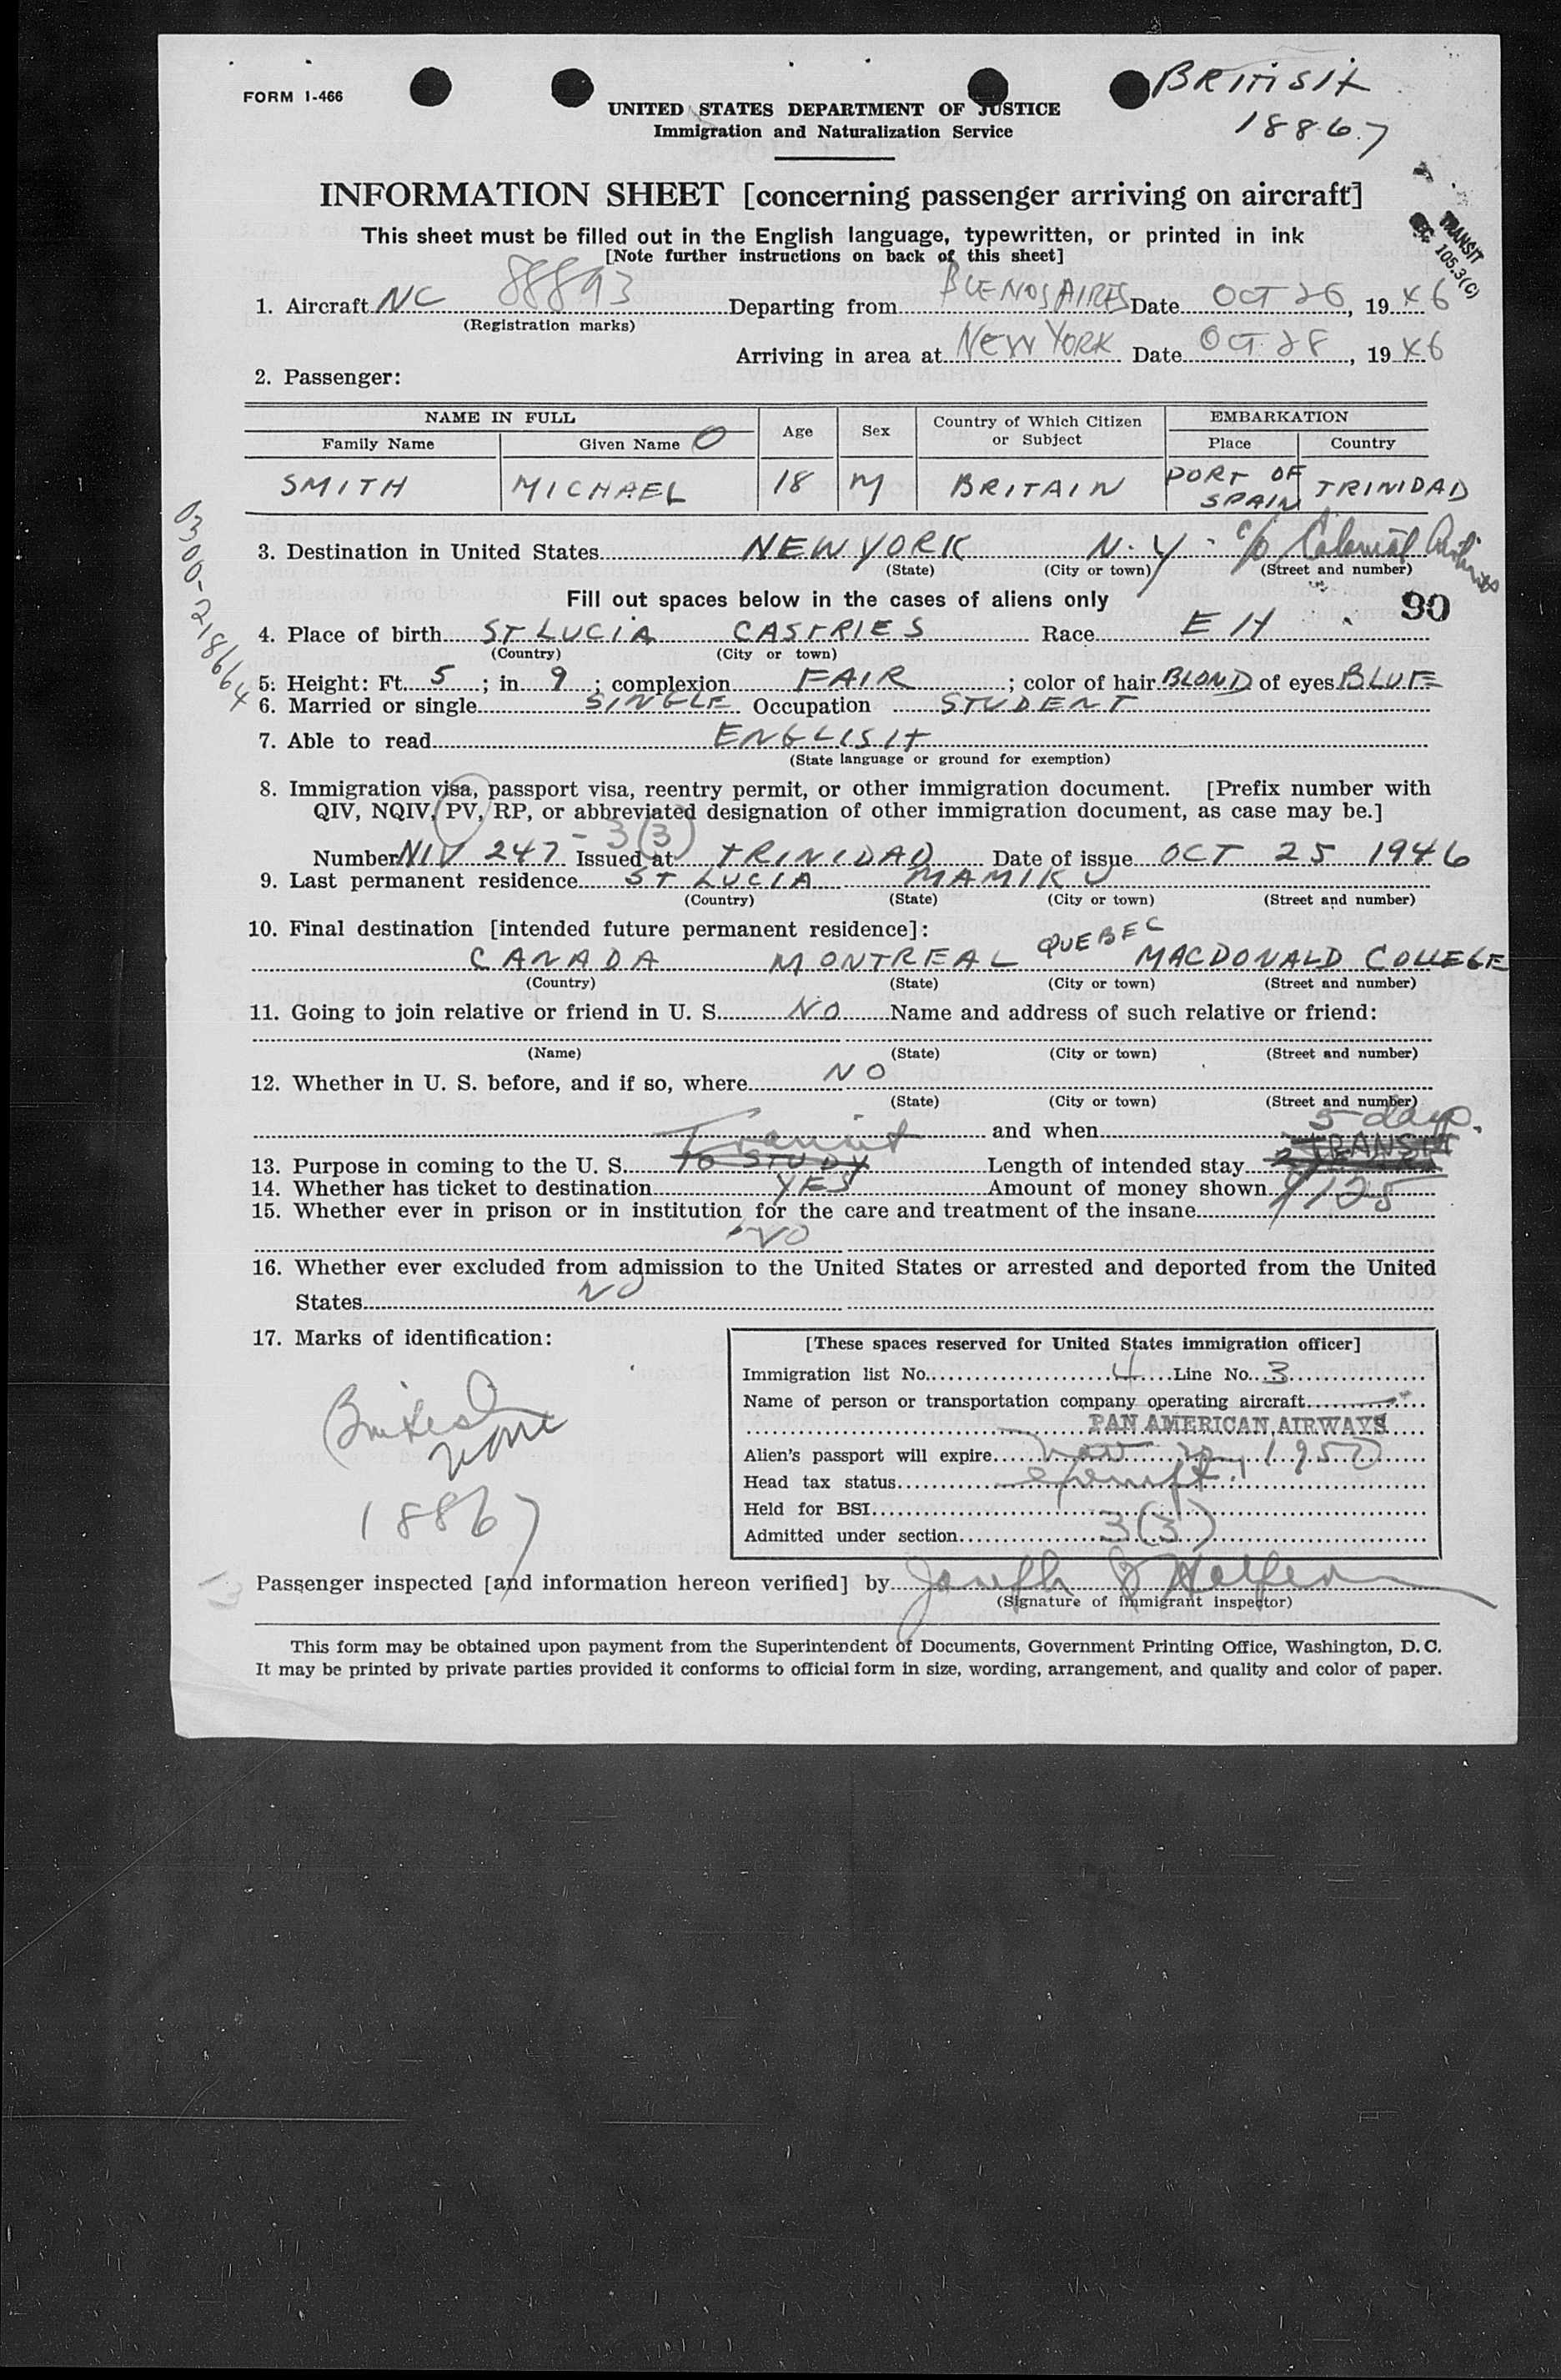 BRITISH
18867
FORM I-466
UNITED STATES DEPARTMENT OF JUSTICE
Immigration and Naturalization Service
INFORMATION SHEET [concerning passenger arriving on aircraft]
TRANSIT
105.3(C)
This sheet must be filled out in the English language, typewritten, or printed in ink
[Note further instructions on back of this sheet]
1. Aircraft NC 88893 Departing from BUENOS AIRES Date OCT 26, 1946
(Registration marks)
Arriving in area at NEW YORK Date OCT 28, 1946
2. Passenger:
NAME IN FULL Age Sex Country of Which Citizen or Subject EMBARKATION
Family Name Given Name Place Country
SMITH MICHAEL 18 M BRITAIN PORT OF SPAIN TRINIDAD
0300-218664
3. Destination in United States NEW YORK N.Y. c/o Colonial Airlines
(State) (City or town) (Street and number)
Fill out spaces below in the cases of aliens only
90
4. Place of birth ST LUCIA CASTRIES Race EH
(Country) (City or town)
5. Height: Ft. 5; in 9; complexion FAIR; color of hair BLOND of eyes BLUE
6. Married or single SINGLE Occupation STUDENT
7. Able to read ENGLISH
(State language or ground for exemption)
8. Immigration visa, passport visa, reentry permit, or other immigration document. [Prefix number with
QIV, NQIV, PV, RP, or abbreviated designation of other immigration document, as case may be.]
- 3(3)
Number NIV 247 Issued at TRINIDAD Date of issue OCT 25 1946
9. Last permanent residence ST LUCIA MAMIKU
(Country) (State) (City or town) (Street and number)
10. Final destination [intended future permanent residence]:
CANADA MONTREAL QUEBEC MACDONALD COLLEGE
(Country) (State) (City or town) (Street and number)
11. Going to join relative or friend in U. S. NO Name and address of such relative or friend:
(Name) (State) (City or town) (Street and number)
12. Whether in U. S. before, and if so, where NO
(State) (City or town) (Street and number)
Transit and when 5 days.
TRANSIT
13. Purpose in coming to the U. S. TO STUDY Length of intended stay
14. Whether has ticket to destination YES Amount of money shown $125
15. Whether ever in prison or in institution for the care and treatment of the insane
NO
16. Whether ever excluded from admission to the United States or arrested and deported from the United
States NO
17. Marks of identification:
British
none
18867
[These spaces reserved for United States immigration officer]
Immigration list No. 4 Line No. 3
Name of person or transportation company operating aircraft
PAN AMERICAN AIRWAYS
Alien's passport will expire 1950
Head tax status exempt.
Held for BSI
Admitted under section 3(3)
Passenger inspected [and information hereon verified] by Joseph
(Signature of immigrant inspector)
This form may be obtained upon payment from the Superintendent of Documents, Government Printing Office, Washington, D. C.
It may be printed by private parties provided it conforms to official form in size, wording, arrangement, and quality and color of paper.